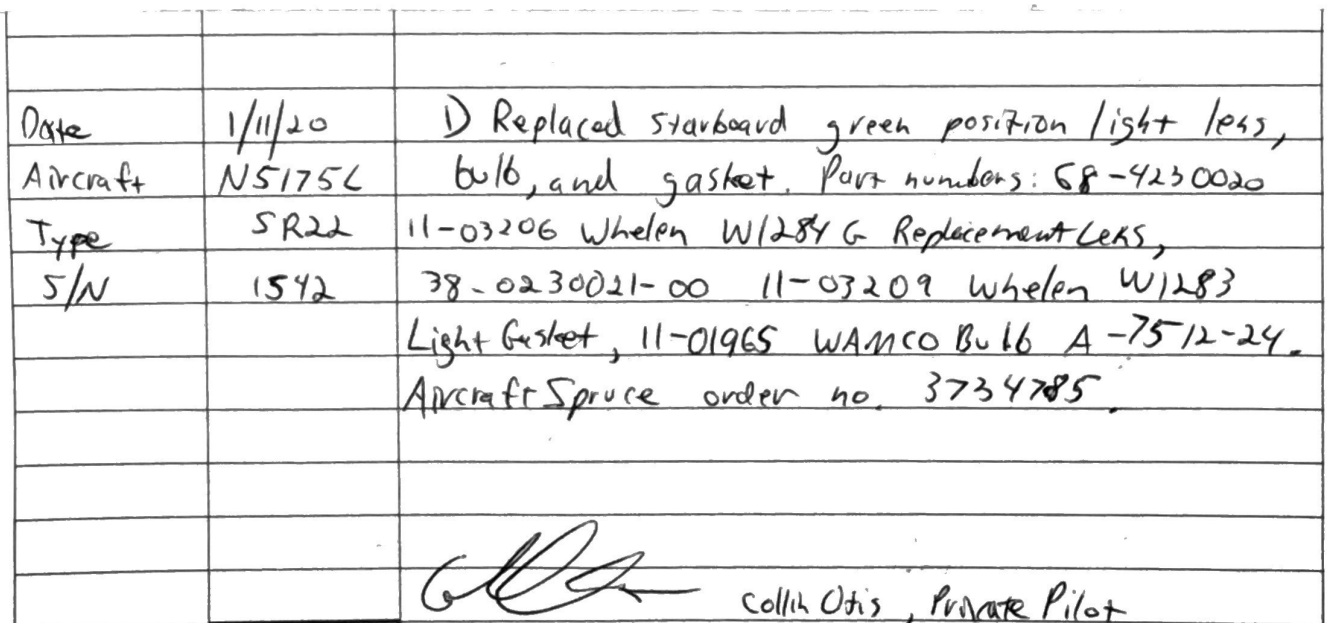 Date 1/11/20 1) Replaced starboard green position light lens,
Aircraft N5175L bulb, and gasket. Part numbers: 68-4230020
Type SR22 11-03206 Whelen W1284 G Replacement Lens,
S/N 1542 38-0230021-00 11-03209 Whelen W1283
Light Gasket, 11-01965 WAMCO Bulb A-7512-24.
Aircraft Spruce order no. 3734785.
Collin Otis, Private Pilot